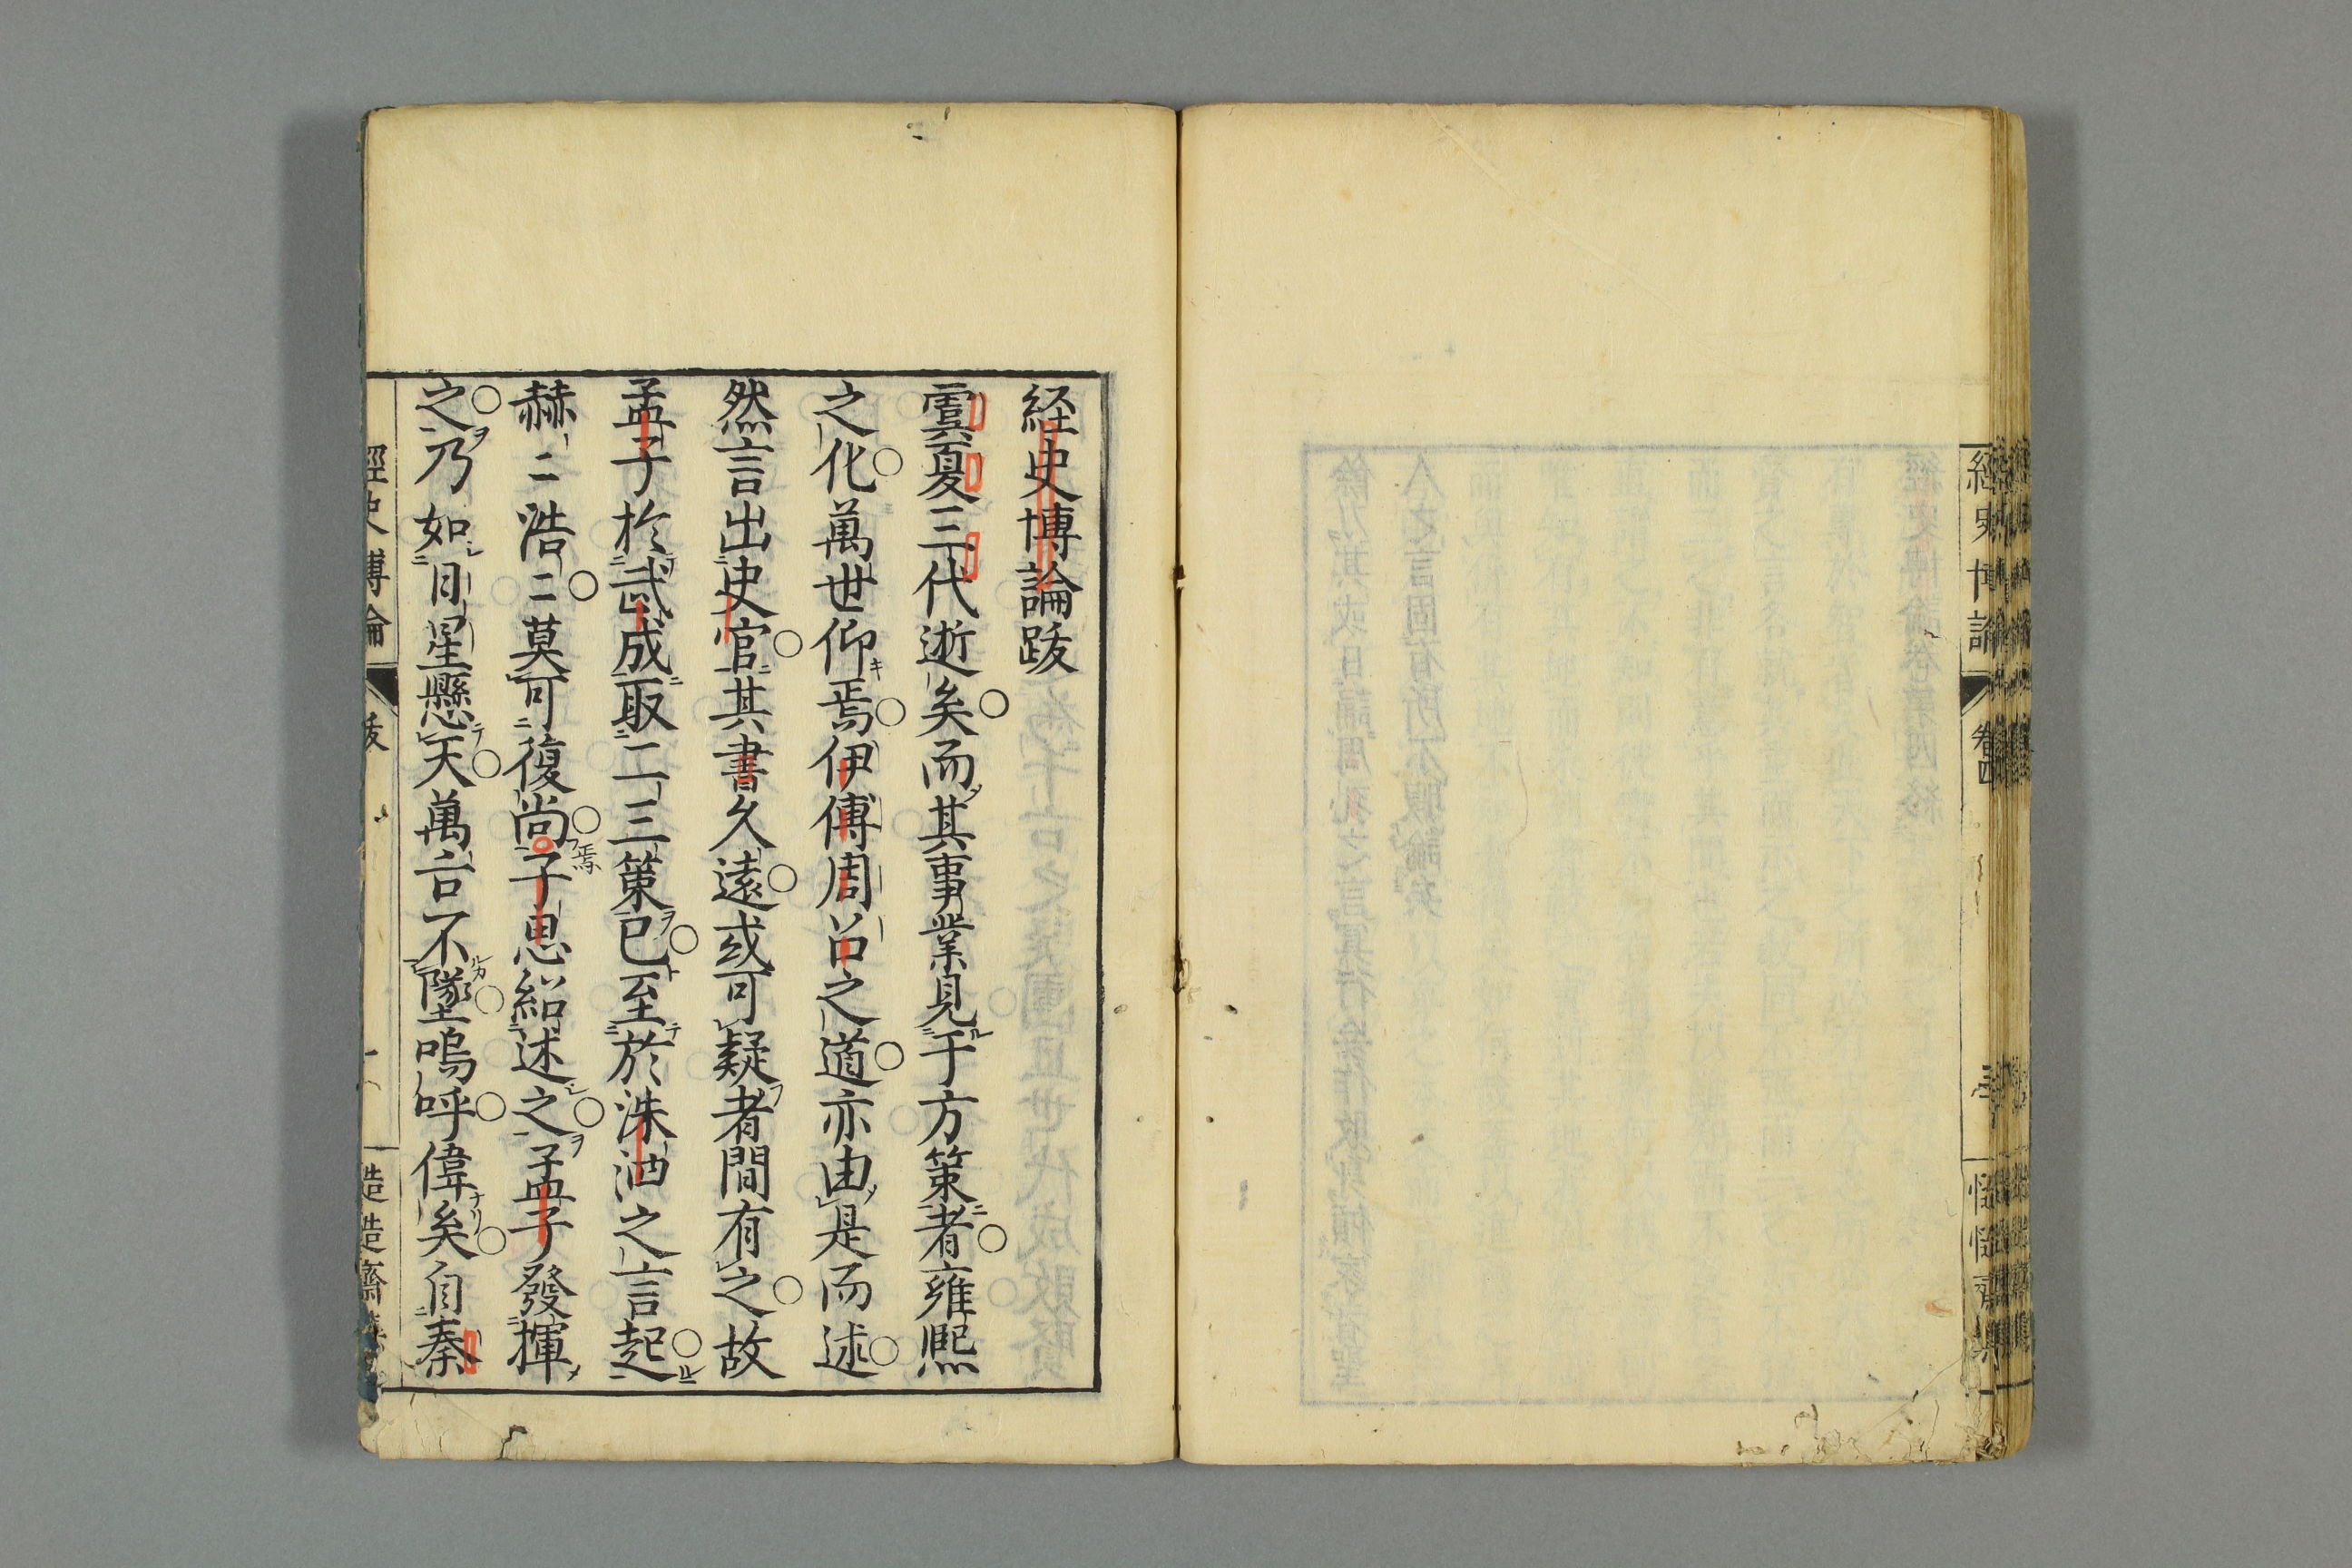 經史博論
卷四
経史博論跋
虞夏三代逝矣而其事業見于方策者雍熙
之化萬世仰焉伊傅周召之道亦由是而述
然言出史官其書久遠或可疑者間有之故
孟子於武成取二三策已至於洙泗之言起
赫〻浩〻莫可復尚焉子思紹述之孟子發揮
之乃如日星懸天萬古不墜嗚呼偉矣自秦
經史博論
跋